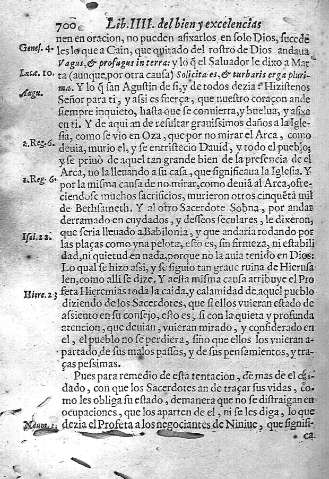 700 Lib. IIII. del bien y excelencias
nen en oracion, no pueden afixarlos en solo Dios, sucede
Genes. 4. les lo que a Cain, que quitado del rostro de Dios andaua
Vagus, & profugus in terra: y lo q̃ el Saluador le dixo a Mar
Lucæ. 10. ta (aunque por otra causa) Solicita es, & turbaris erga pluri
Augu. ma. Y lo q̃ san Agustin de si, y de todos dezia: Hizistenos
Señor para ti, y assi es fuerça, que nuestro coraçon ande
siempre inquieto, hasta que se conuierta, y buelua, y afixa
en ti. Y de aqui en de resultar grauissimos daños a la Igle
sia, como se vio en Oza, que por no mirar el Arca, como
2. Reg. 6. deuia, murio el, y se entristecio Dauid, y todo el pueblo,
y se priuò de aquel tan grande bien de la presencia de el
2. Reg. 6. Arca, no la lleuando a su casa, que significaua la Iglesia. Y
por la misma causa de no mirar, como deuia al Arca, ofre
ciendose muchos sacrificios, murieron otros cinquẽta mil
de Bethsameth. Y al otro Sacerdote Sobna, por andar
derramado en cuydados, y desseos seculares, le dixeron,
que seria lleuado a Babilonia, y que andaria rodando por
Isai. 22. las plaças como vna pelota, esto es, sin firmeza, ni estabili
dad, ni quietud en nada, porque no la auia tenido en Dios:
Lo qual se hizo assi, y se siguio tan graue ruina de Hierusa
len, como alli se dize. Y a esta misma causa atribuye el Pro
Hire. 23 feta Hieremias toda la caida, y calamidad de aquel pueblo
diziendo de los Sacerdotes, que si ellos vuieran estado de
assiento en su consejo, esto es, si con la quieta y profunda
atencion, que deuian, vuieran mirado, y considerado en
el, el pueblo no se perdiera, sino que ellos los vuieran a-
partado, de sus malos passos, y de sus pensamientos, y tra-
ças pessimas.
Pues para remedio de esta tentacion, de mas de el cui-
dado, con que los Sacerdotes an de traçar sus vidas, co
mo les obliga su estado, demanera que no se distraigan en
ocupaciones, que los aparten de el, ni se les diga, lo que
Naum. 3. dezia el Profeta a los negociantes de Niniue, que signifi-
ca.